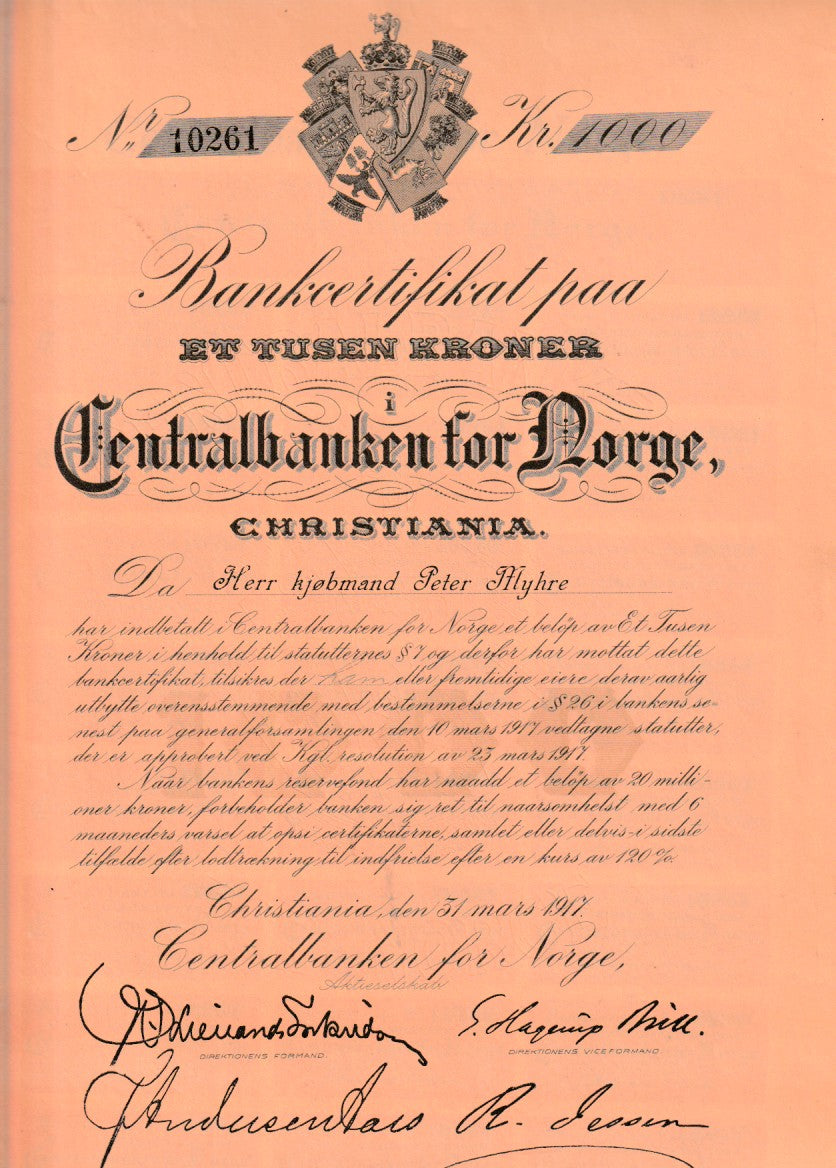 Nr. 10261 Kr. 1000
Bankcertifikat paa
ET TUSEN KRONER
i
Centralbanken for Norge,
CHRISTIANIA.
Da Herr kjøbmand Peter Myhre
har indbetalt i Centralbanken for Norge et beløp av Et Tusen
Kroner i henhold til statutternes § 7 og derfor har mottat dette
bankcertifikat, tilsikres der ham eller fremtidige eiere derav aarlig
utbytte overensstemmende med bestemmelserne i § 26 i bankens se=
nest paa generalforsamlingen den 10 mars 1917 vedtagne statutter,
der er approbert ved Kgl. resolution av 23 mars 1917.
Naar bankens reservefond har naadd et beløp av 20 milli-
oner kroner, forbeholder banken sig ret til naarsomhelst med 6
maaneders varsel at opsi certifikaterne, samlet eller delvis - i sidste
tilfælde efter lodtrækning til indfrielse efter en kurs av 120 %.
Christiania, den 31 mars 1917.
Centralbanken for Norge,
Aktieselskab
E. Hagerup Bull.
DIREKTIONENS FORMAND. DIREKTIONENS VICEFORMAND.
R. Jessen